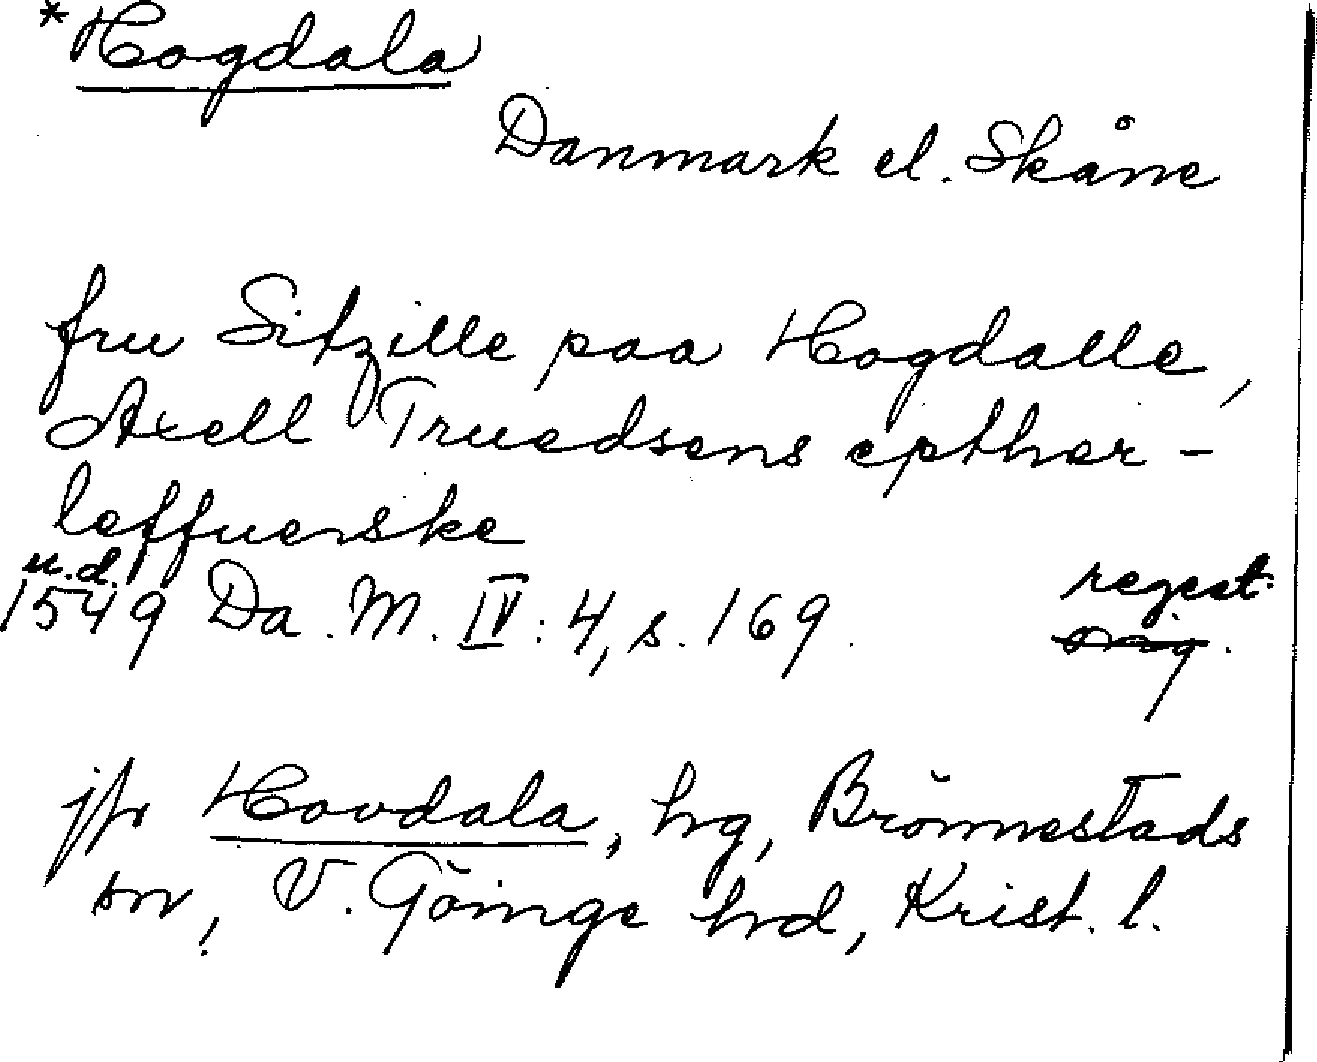 *Hogdala
Danmark el. Skåne
fru Sitzille paa Hogdalle,
Axell Truedsens epther-
leffuerske
u.d.
1549 Da. M. IV: 4, s. 169. regest.
orig.
jfr Hovdala, hg, Brönnestads
sn, V. Göinge hd, Krist. l.